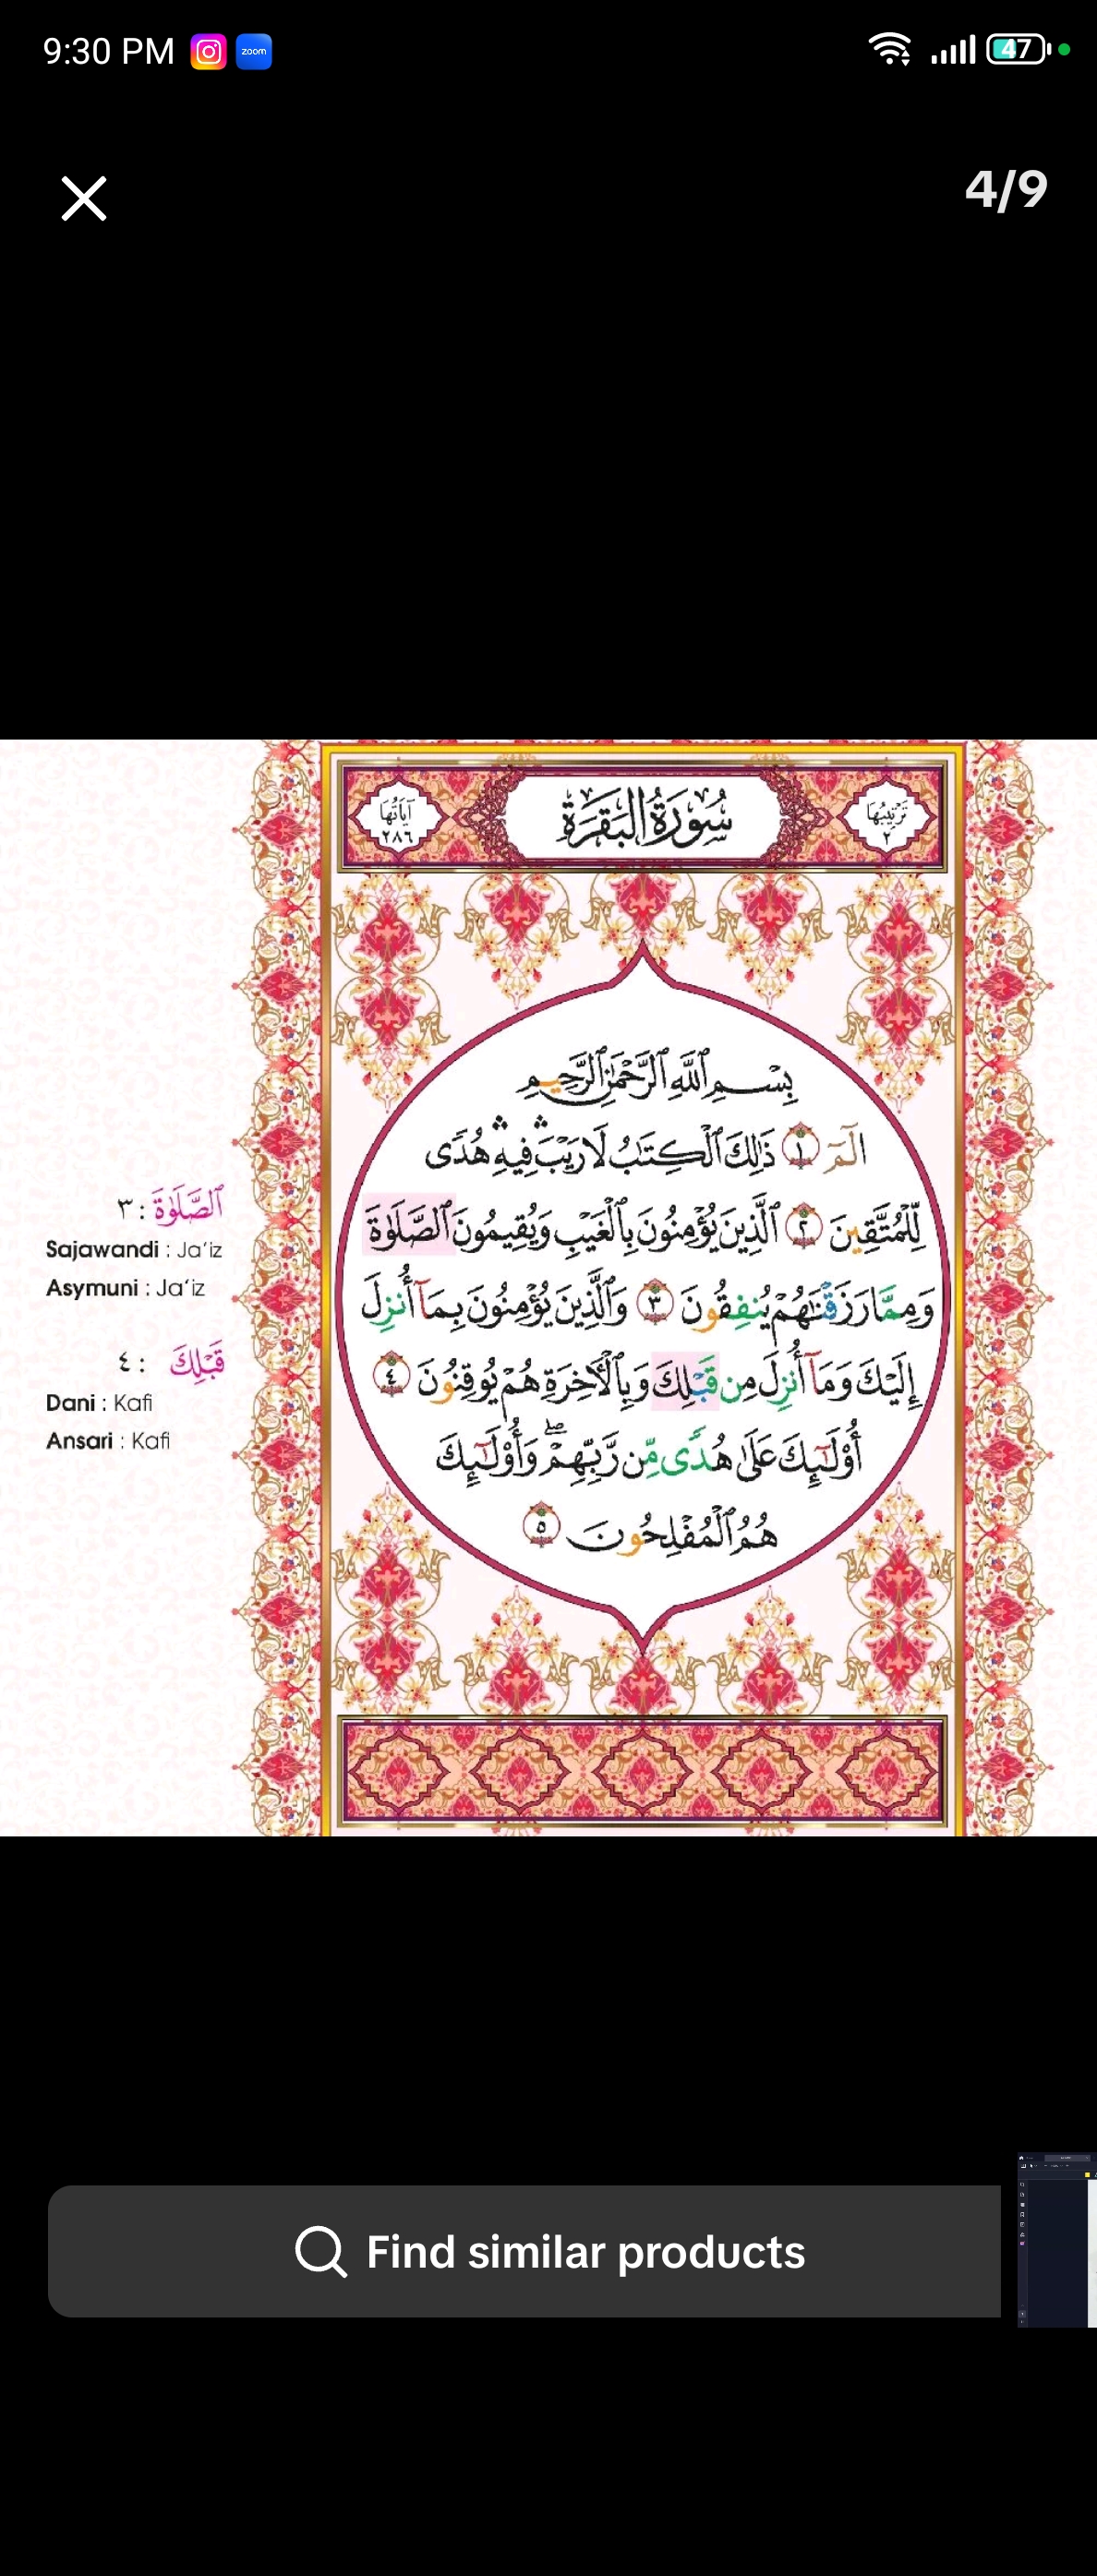 9:30 PM
zoom
47
4/9
آيَاتُهَا
٢٨٦
سُورَةُ الْبَقَرَةِ
تَرْتِيبُهَا
٢
بِسْمِ ٱللَّهِ ٱلرَّحْمَٰنِ ٱلرَّحِيمِ
الٓمٓ ١ ذَٰلِكَ ٱلْكِتَٰبُ لَا رَيْبَ ۛ فِيهِ ۛ هُدًى
لِّلْمُتَّقِينَ ٢ ٱلَّذِينَ يُؤْمِنُونَ بِٱلْغَيْبِ وَيُقِيمُونَ ٱلصَّلَوٰةَ
وَمِمَّا رَزَقْنَٰهُمْ يُنفِقُونَ ٣ وَٱلَّذِينَ يُؤْمِنُونَ بِمَآ أُنزِلَ
إِلَيْكَ وَمَآ أُنزِلَ مِن قَبْلِكَ وَبِٱلْأَخِرَةِ هُمْ يُوقِنُونَ ٤
أُو۟لَٰٓئِكَ عَلَىٰ هُدًى مِّن رَّبِّهِمْ ۖ وَأُو۟لَٰٓئِكَ
هُمُ ٱلْمُفْلِحُونَ ٥
ٱلصَّلَوٰةَ : ٣
Sajawandi : Ja'iz
Asymuni : Ja'iz
قَبْلِكَ : ٤
Dani : Kafi
Ansari : Kafi
Find similar products